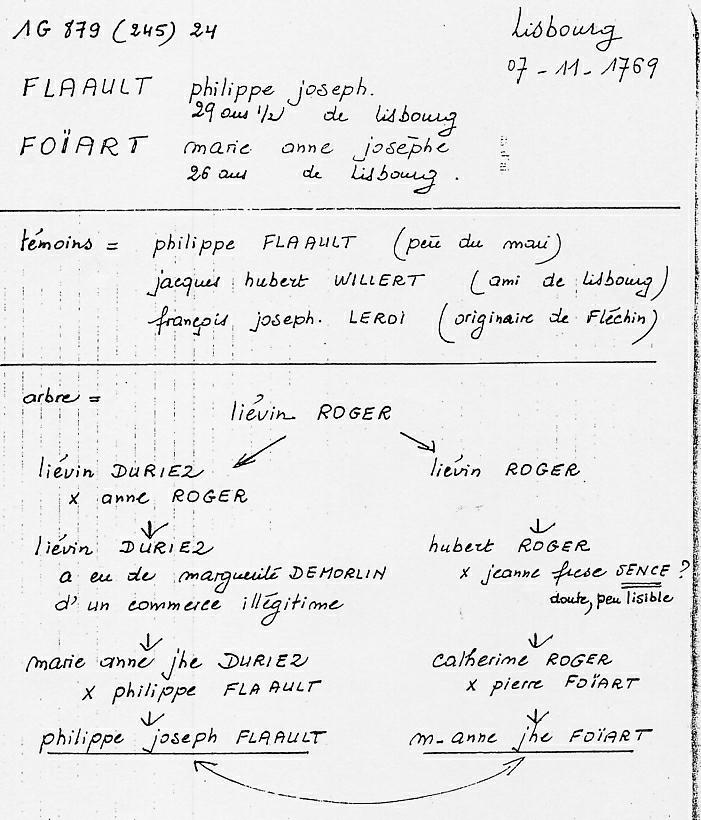 1G 879 (245) 24
Lisbourg
07-11-1769
FLAAULT philippe joseph.
29 ans 1/2 de lisbourg
FOÏART marie anne josèphe
26 ans de lisbourg.
témoins = philippe FLAAULT (père du mari)
jacques hubert WILLERT (ami de lisbourg)
françois joseph. LEROI (originaire de Fléchin)
arbre =
liévin ROGER
liévin DURIEZ
x anne ROGER
liévin ROGER
liévin DURIEZ
a eu de marguerite DEMORLIN
d'un commerce illégitime
hubert ROGER
x jeanne frese SENCE ?
doute, peu lisible
marie anne jhe DURIEZ
x philippe FLAAULT
catherine ROGER
x pierre FOÏART
philippe joseph FLAAULT
m-anne jhe FOÏART